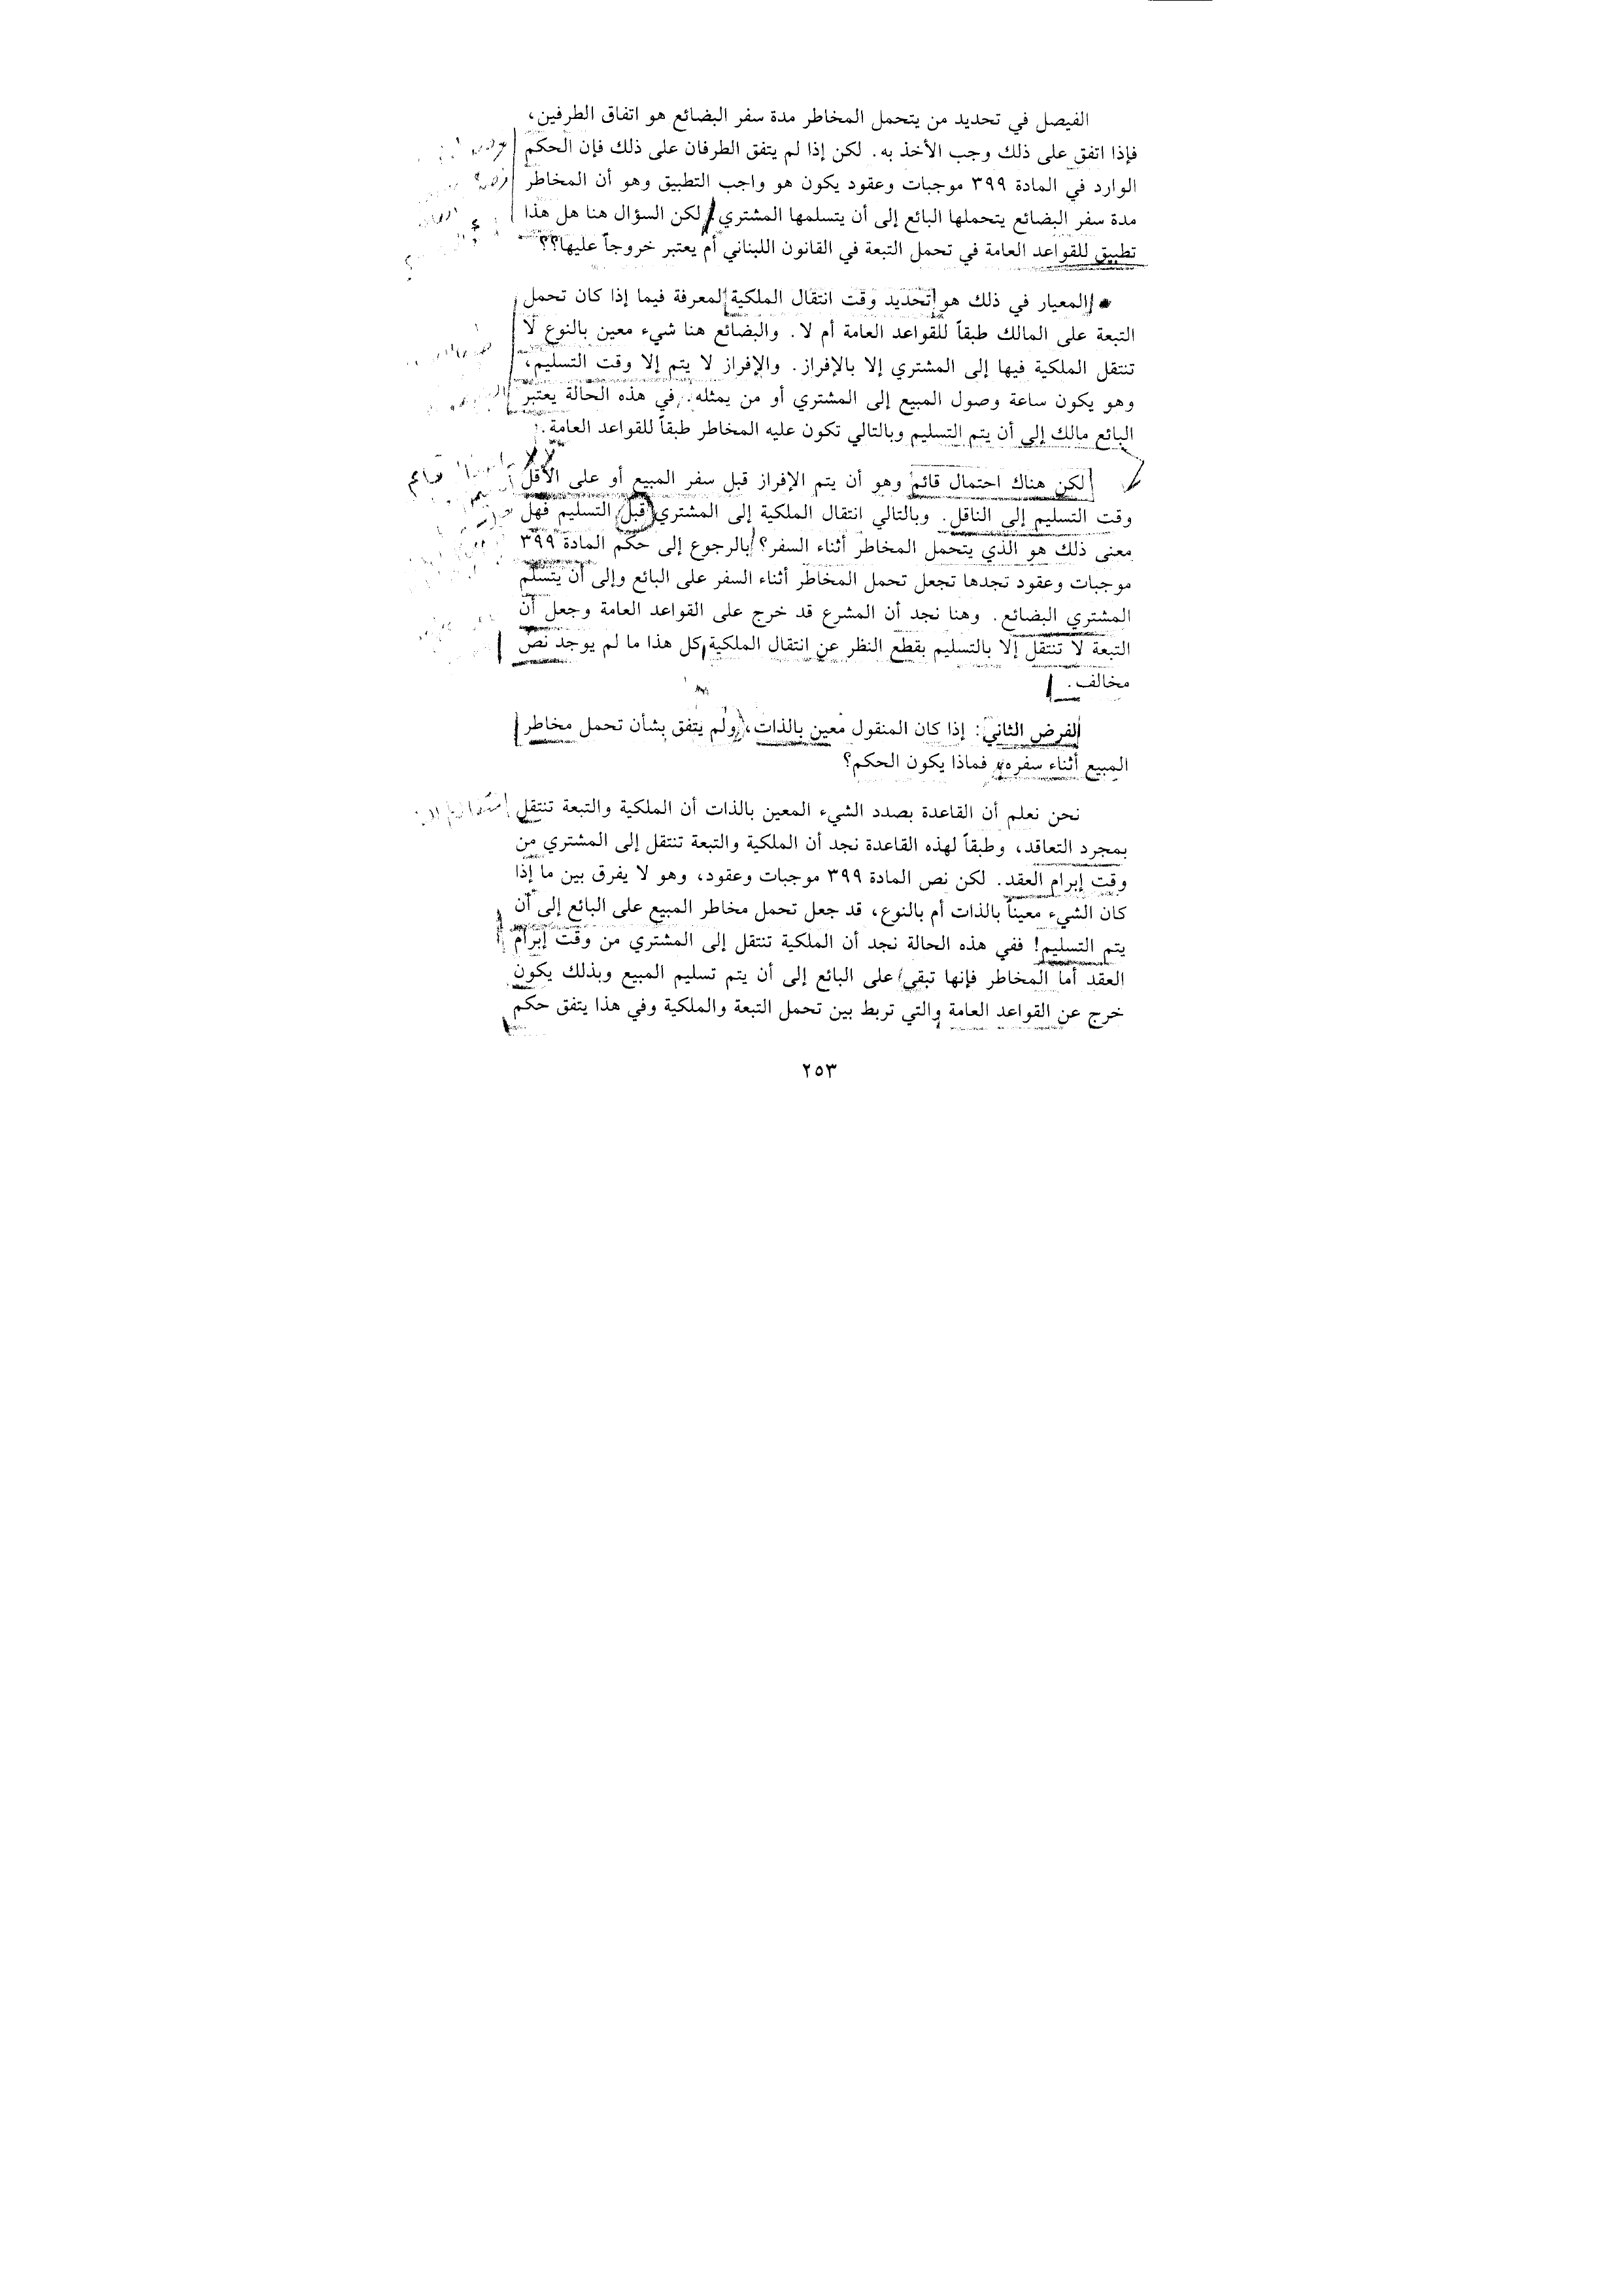 الفيصل في تحديد من يتحمل المخاطر مدة سفر البضائع هو اتفاق الطرفين،
فإذا اتفق على ذلك وجب الأخذ به. لكن إذا لم يتفق الطرفان على ذلك فإن الحكم
الوارد في المادة ٣٩٩ موجبات وعقود يكون هو واجب التطبيق وهو أن المخاطر
مدة سفر البضائع يتحملها البائع إلى أن يتسلمها المشتري. لكن السؤال هنا هل هذا
تطبيق للقواعد العامة في تحمل التبعة في القانون اللبناني أم يعتبر خروجاً عليها؟؟
المعيار في ذلك هو تحديد وقت انتقال الملكية لمعرفة فيما إذا كان تحمل
التبعة على المالك طبقاً للقواعد العامة أم لا. والبضائع هنا شيء معين بالنوع لا
تنتقل الملكية فيها إلى المشتري إلا بالإفراز. والإفراز لا يتم إلا وقت التسليم،
وهو يكون ساعة وصول المبيع إلى المشتري أو من يمثله. في هذه الحالة يعتبر
البائع مالك إلى أن يتم التسليم وبالتالي تكون عليه المخاطر طبقاً للقواعد العامة.
لكن هناك احتمال قائم وهو أن يتم الإفراز قبل سفر المبيع أو على الأقل
وقت التسليم إلى الناقل. وبالتالي انتقال الملكية إلى المشتري قبل التسليم فهل
معنى ذلك هو الذي يتحمل المخاطر أثناء السفر؟ بالرجوع إلى حكم المادة ٣٩٩
موجبات وعقود تجدها تجعل تحمل المخاطر أثناء السفر على البائع وإلى أن يتسلم
المشتري البضائع. وهنا نجد أن المشرع قد خرج على القواعد العامة وجعل أن
التبعة لا تنتقل إلا بالتسليم بقطع النظر عن انتقال الملكية كل هذا ما لم يوجد نص
مخالف.
الفرض الثاني: إذا كان المنقول معين بالذات، ولم يتفق بشأن تحمل مخاطر
المبيع أثناء سفره، فماذا يكون الحكم؟
نحن نعلم أن القاعدة بصدد الشيء المعين بالذات أن الملكية والتبعة تنتقل
بمجرد التعاقد، وطبقاً لهذه القاعدة نجد أن الملكية والتبعة تنتقل إلى المشتري من
وقت إبرام العقد. لكن نص المادة ٣٩٩ موجبات وعقود، وهو لا يفرق بين ما إذا
كان الشيء معيناً بالذات أم بالنوع، قد جعل تحمل مخاطر المبيع على البائع إلى أن
يتم التسليم! ففي هذه الحالة نجد أن الملكية تنتقل إلى المشتري من وقت إبرام
العقد أما المخاطر فإنها تبقى على البائع إلى أن يتم تسليم المبيع وبذلك يكون
خرج عن القواعد العامة والتي تربط بين تحمل التبعة والملكية وفي هذا يتفق حكم
٢٥٣